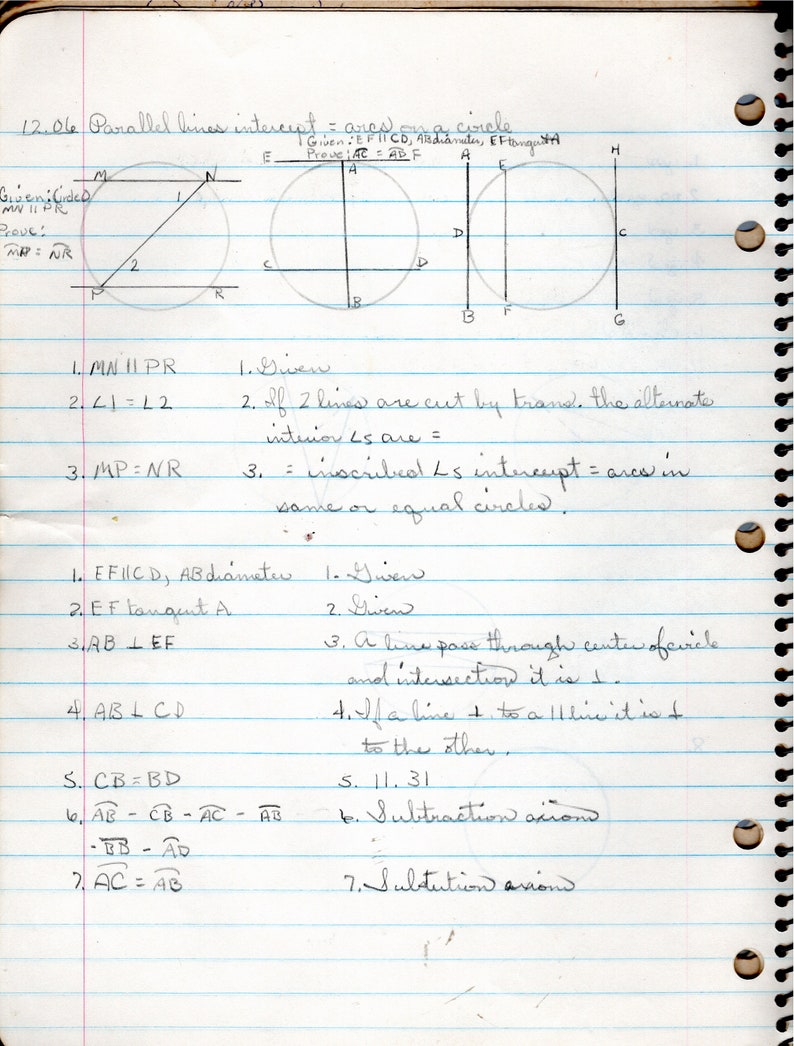 12.06 Parallel lines intercept = arcs on a circle
Given: EF || CD, AB diameter, EF tangent A
Prove: AC = AD
E F A E H
A
M N
1
Given: Circle O
MN || PR
Prove:
MP = NR
D C
2
C D
P R
B F
B G
1. MN || PR 1. Given
2. ∠1 = ∠2 2. If 2 lines are cut by trans. the alternate
interior ∠s are =
3. MP = NR 3. = inscribed ∠s intercept = arcs in
same or equal circles.
1. EF || CD, AB diameter 1. Given
2. EF tangent A 2. Given
3. AB ⊥ EF 3. A line pass through center of circle
and intersection it is ⊥.
4. AB ⊥ CD 4. If a line ⊥ to a || line it is ⊥
to the other.
5. CB = BD 5. 11.31
6. AB - CB - AC - AB 6. Subtraction axiom
- BB - AD
7. AC = AB 7. Substution axiom